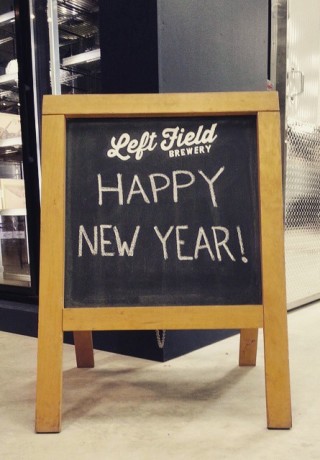 Left Field
BREWERY
HAPPY
NEW YEAR!